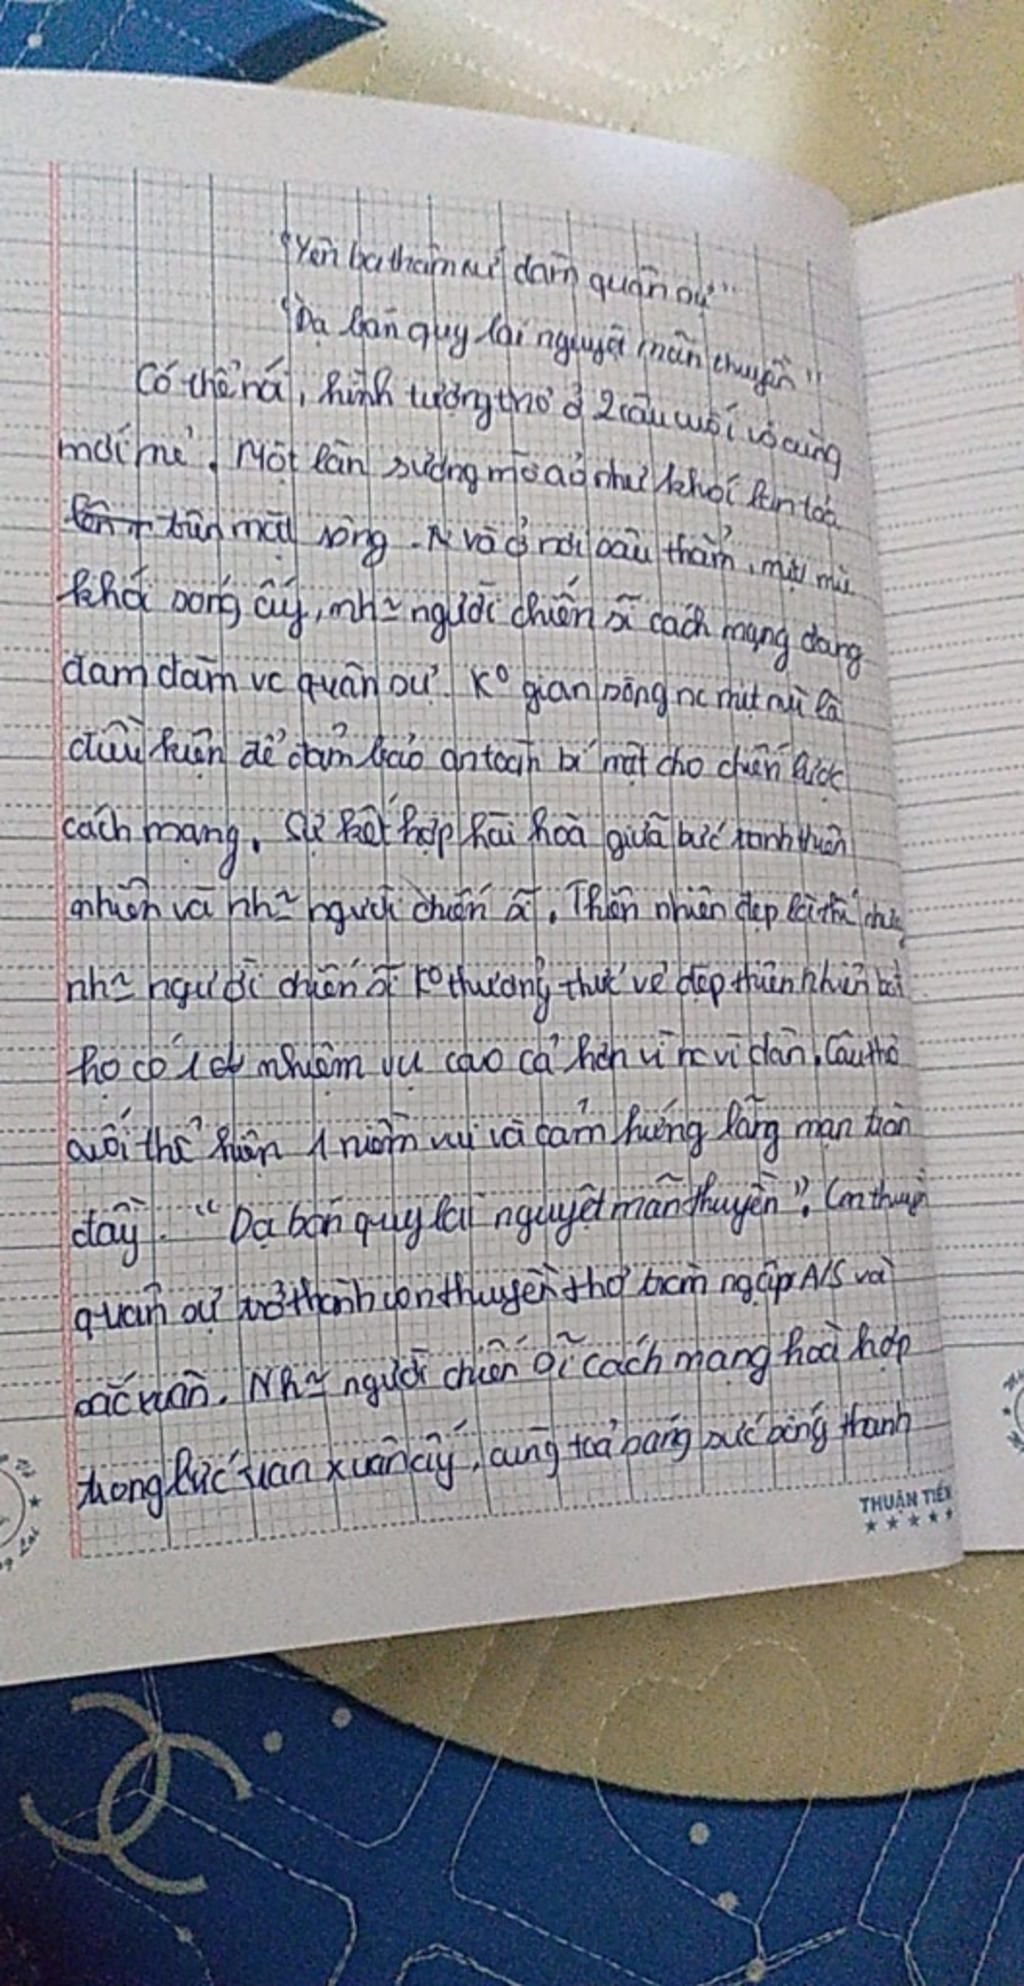 "Yên ba thâm xứ đàm quân sự"
"Dạ bán quy lai nguyệt mãn thuyền"
Có thể nói, hình tượng thơ ở 2 câu cuối vô cùng
mới mẻ. Một làn sương mờ ảo như khói lan toả
trên mặt sông. Và ở nơi sâu thẳm, mịt mù
khói sóng ấy, nh~ người chiến sĩ cách mạng đang
đàm đàm vc quân sự. K° gian sông nc mịt mù là
điều kiện để đảm bảo an toàn bí mật cho chiến lược
cách mạng. Sự kết hợp hài hoà giữa bức tranh thiên
nhiên và nh~ người chiến sĩ. Thiên nhiên đẹp là thế
nh~ người chiến sĩ k° thưởng thức vẻ đẹp thiên nhiên bởi
họ có 1 nhiệm vụ cao cả hơn vì nc vì dân. Câu thơ
cuối thể hiện 1 niềm vui và cảm hứng lãng mạn tràn
đầy. "Dạ bán quy lai nguyệt mãn thuyền". Con thuyền
quân sự trở thành con thuyền thơ tràn ngập A/S và
sắc xuân. Nh~ người chiến sĩ cách mạng hoà hợp
trong bức xuân ấy, cũng toả sáng sức sống thanh
THUẬN TIẾN